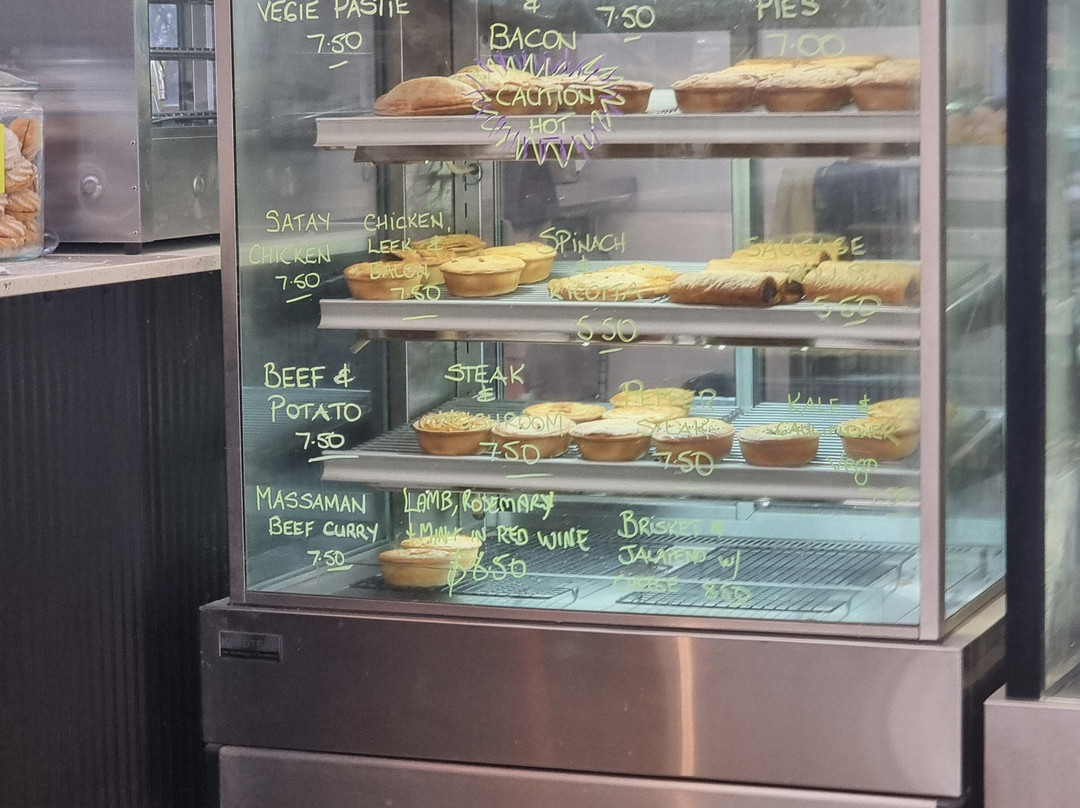 VEGIE PASTIE
7.50
&
BACON
7.50
PIES
7.00
CAUTION
HOT
SATAY
CHICKEN
7.50
CHICKEN,
LEEK &
BACON
7.50
SPINACH
&
RICOTTA
5.50
SAUSAGE
5.50
BEEF &
POTATO
7.50
STEAK
&
MUSHROOM
7.50
PEPPER
STEAK
7.50
&
CAULIFLOWER
MASSAMAN
BEEF CURRY
7.50
LAMB, ROSEMARY
+ MINT IN RED WINE
$8.50
BRISKET &
JALAPENO W/
CHEESE 8.50